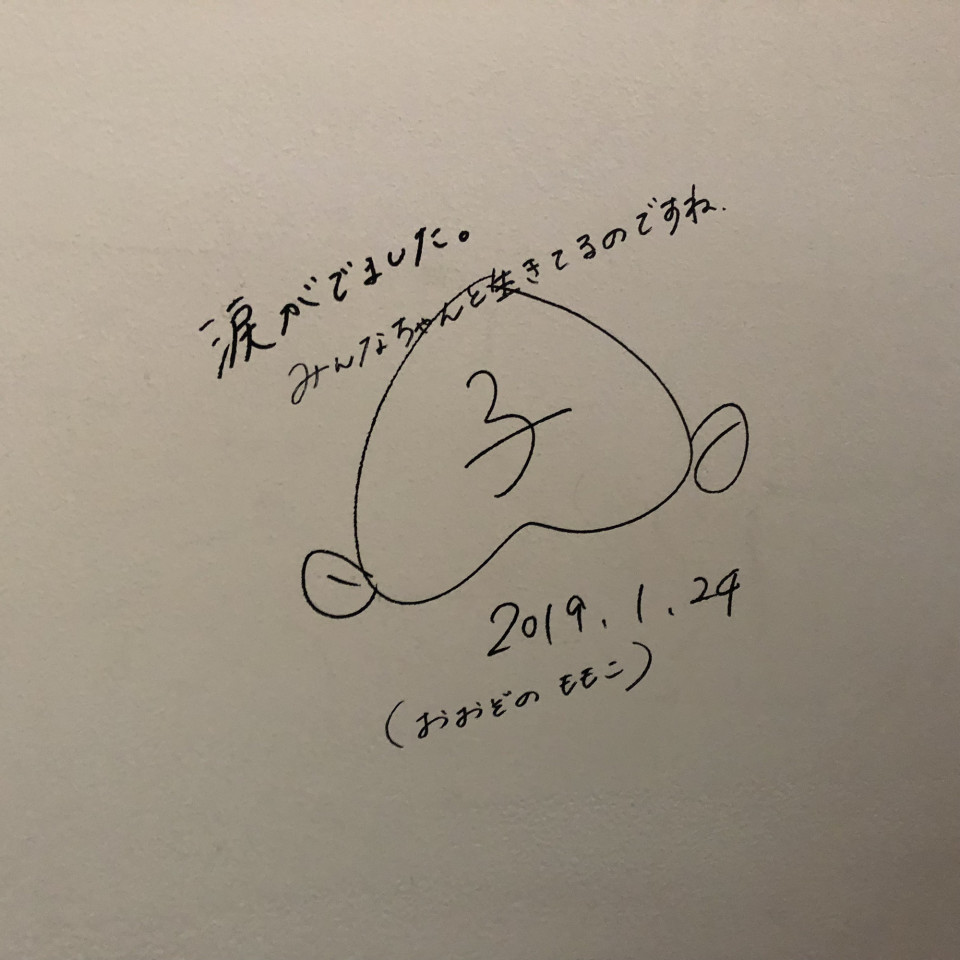 涙がでました。
みんなちゃんと生きてるのですね.
子
2019.1.24
(おおぞの ももこ)